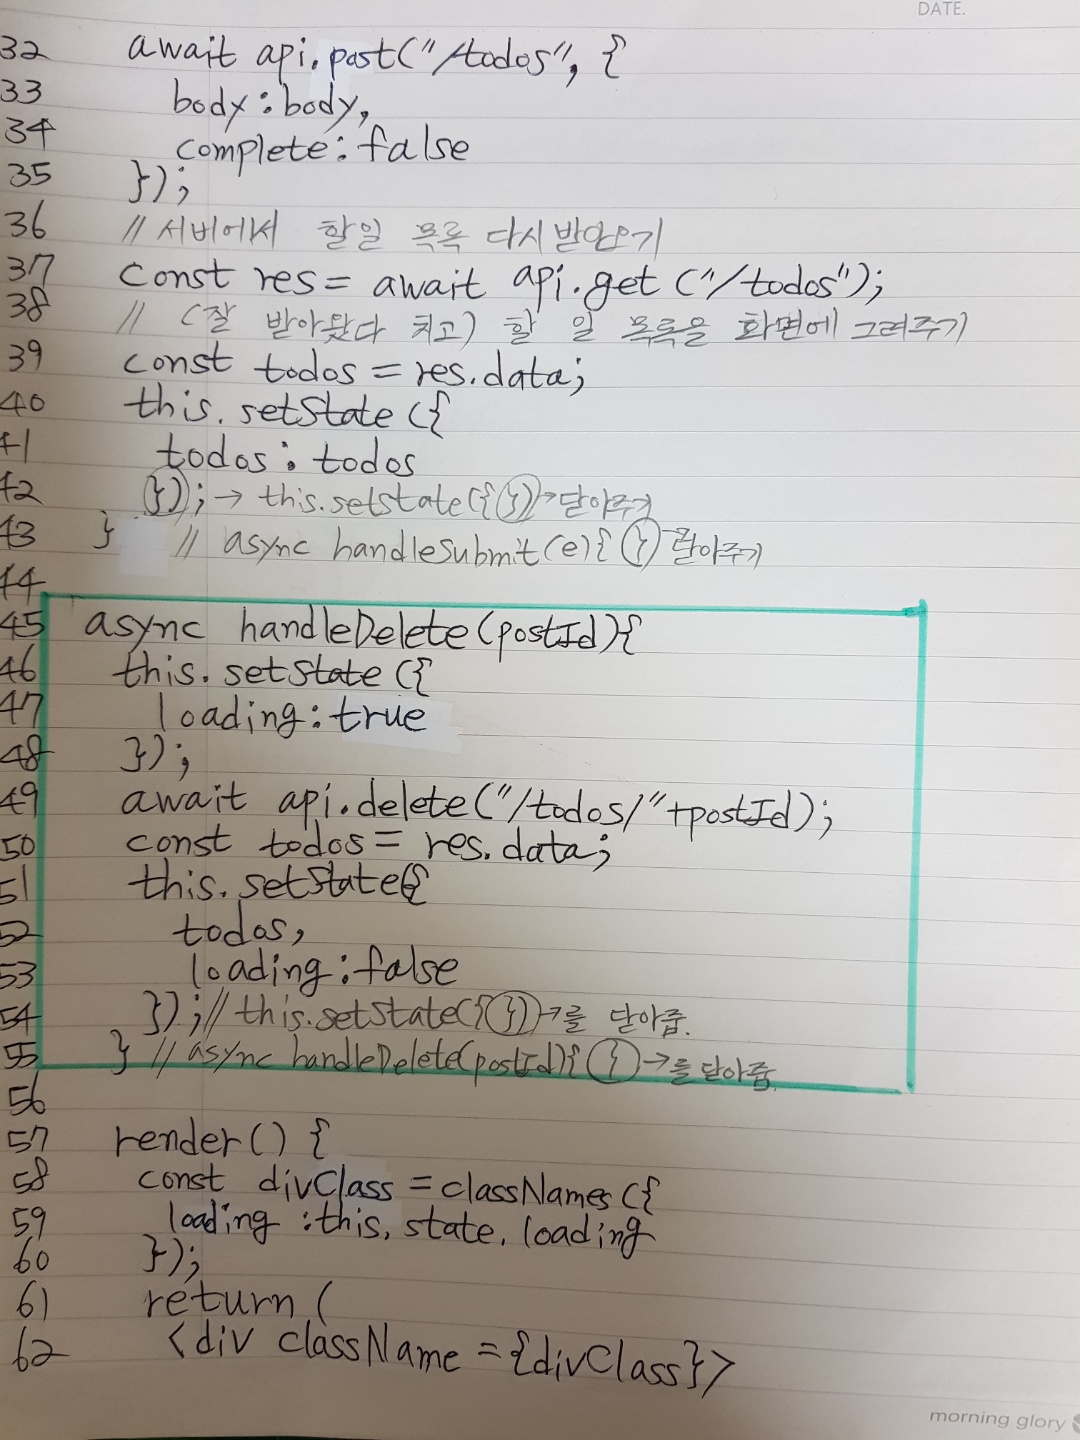 DATE.
32 await api.post("/todos", {
33 body:body,
34 complete:false
35 });
36 // 서버에서 할일 목록 다시 받아오기
37 const res= await api.get ("/todos");
38 // (잘 받아왔다 치고) 할 일 목록을 화면에 그려주기
39 const todos = res.data;
40 this.setState ({
41 todos: todos
42 }); → this.setState({ }) → 닫아주기
43 } // async handleSubmit(e){ } 닫아주기
44
45 async handleDelete(postId){
46 this.setState ({
47 loading:true
48 });
49 await api.delete("/todos/"+postId);
50 const todos = res.data;
51 this.setState({
52 todos,
53 loading:false
54 }); // this.setState({ }) →를 닫아줍.
55 } // async handleDelete(postId){ } →를 닫아줍
56
57 render() {
58 const divClass = classNames ({
59 loading :this.state.loading
60 });
61 return (
62 <div className = {divClass}>
morning glory